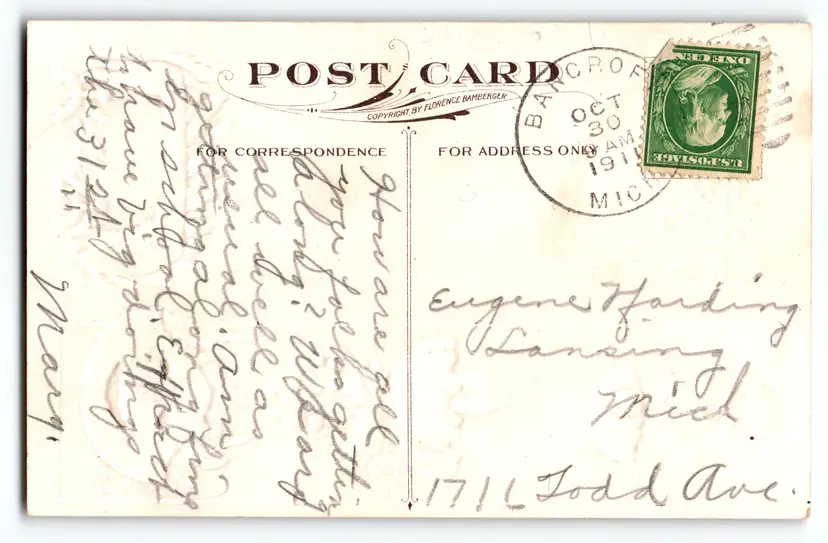 POST CARD
COPYRIGHT, BY FLORENCE BAMBERGER
FOR CORRESPONDENCE
FOR ADDRESS ONLY
BANCROFT
OCT
30
AM
1911
MICH
U.S. POSTAGE
ONE CENT
How are all
you folks getting
along? We are
all well as
usual. Am
getting along fine
in school. Expect
t have big doings
the 31st
Mary.
Eugene Harding
Lansing
Mich
1716 Todd Ave.